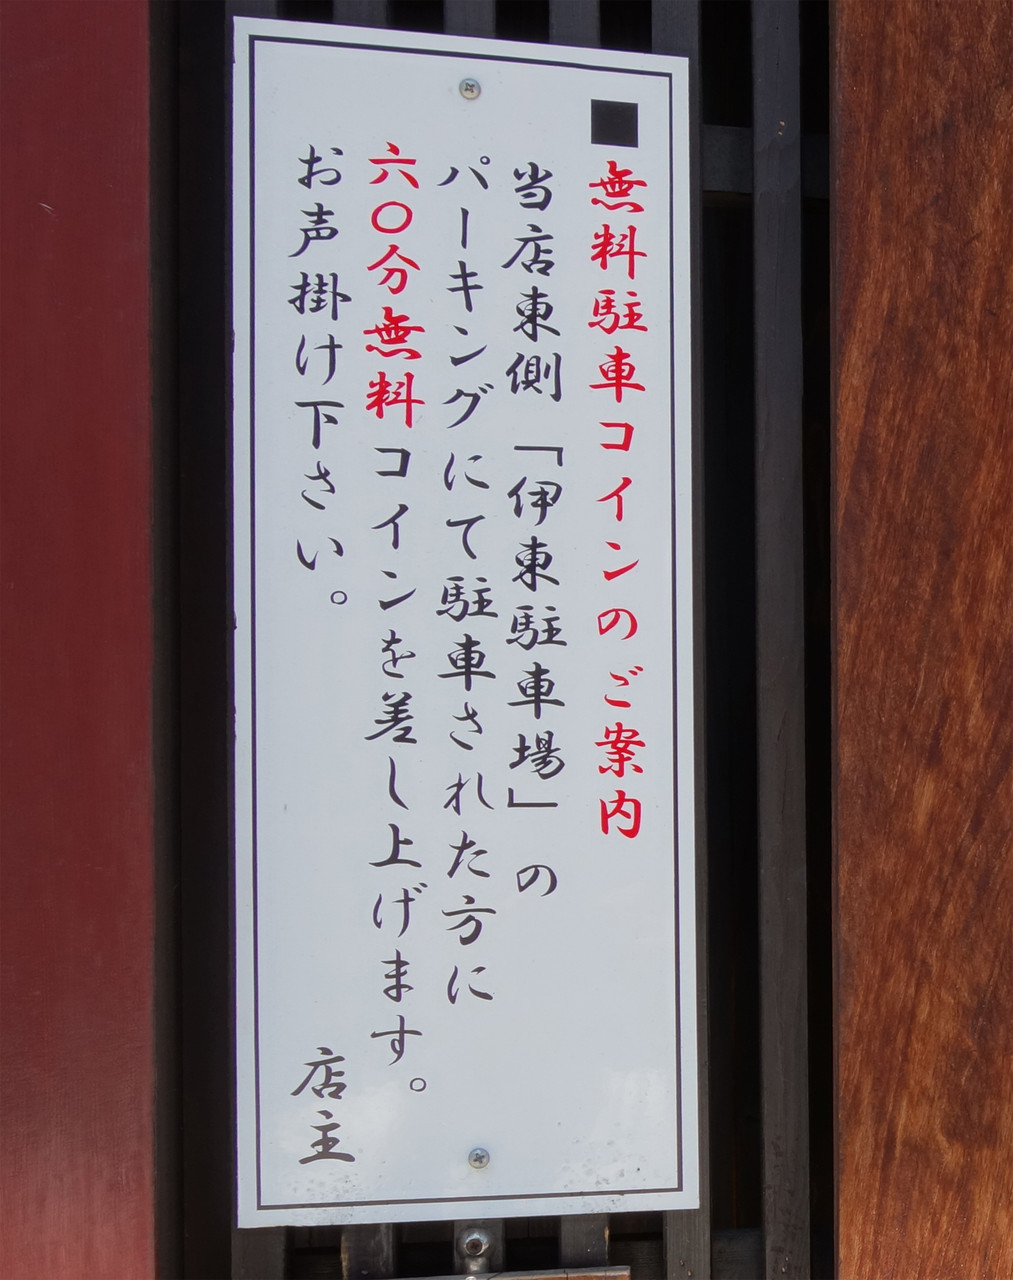 ■無料駐車コインのご案内
当店東側「伊東駐車場」の
パーキングにて駐車された方に
六〇分無料コインを差し上げます。
お声掛け下さい。
店主